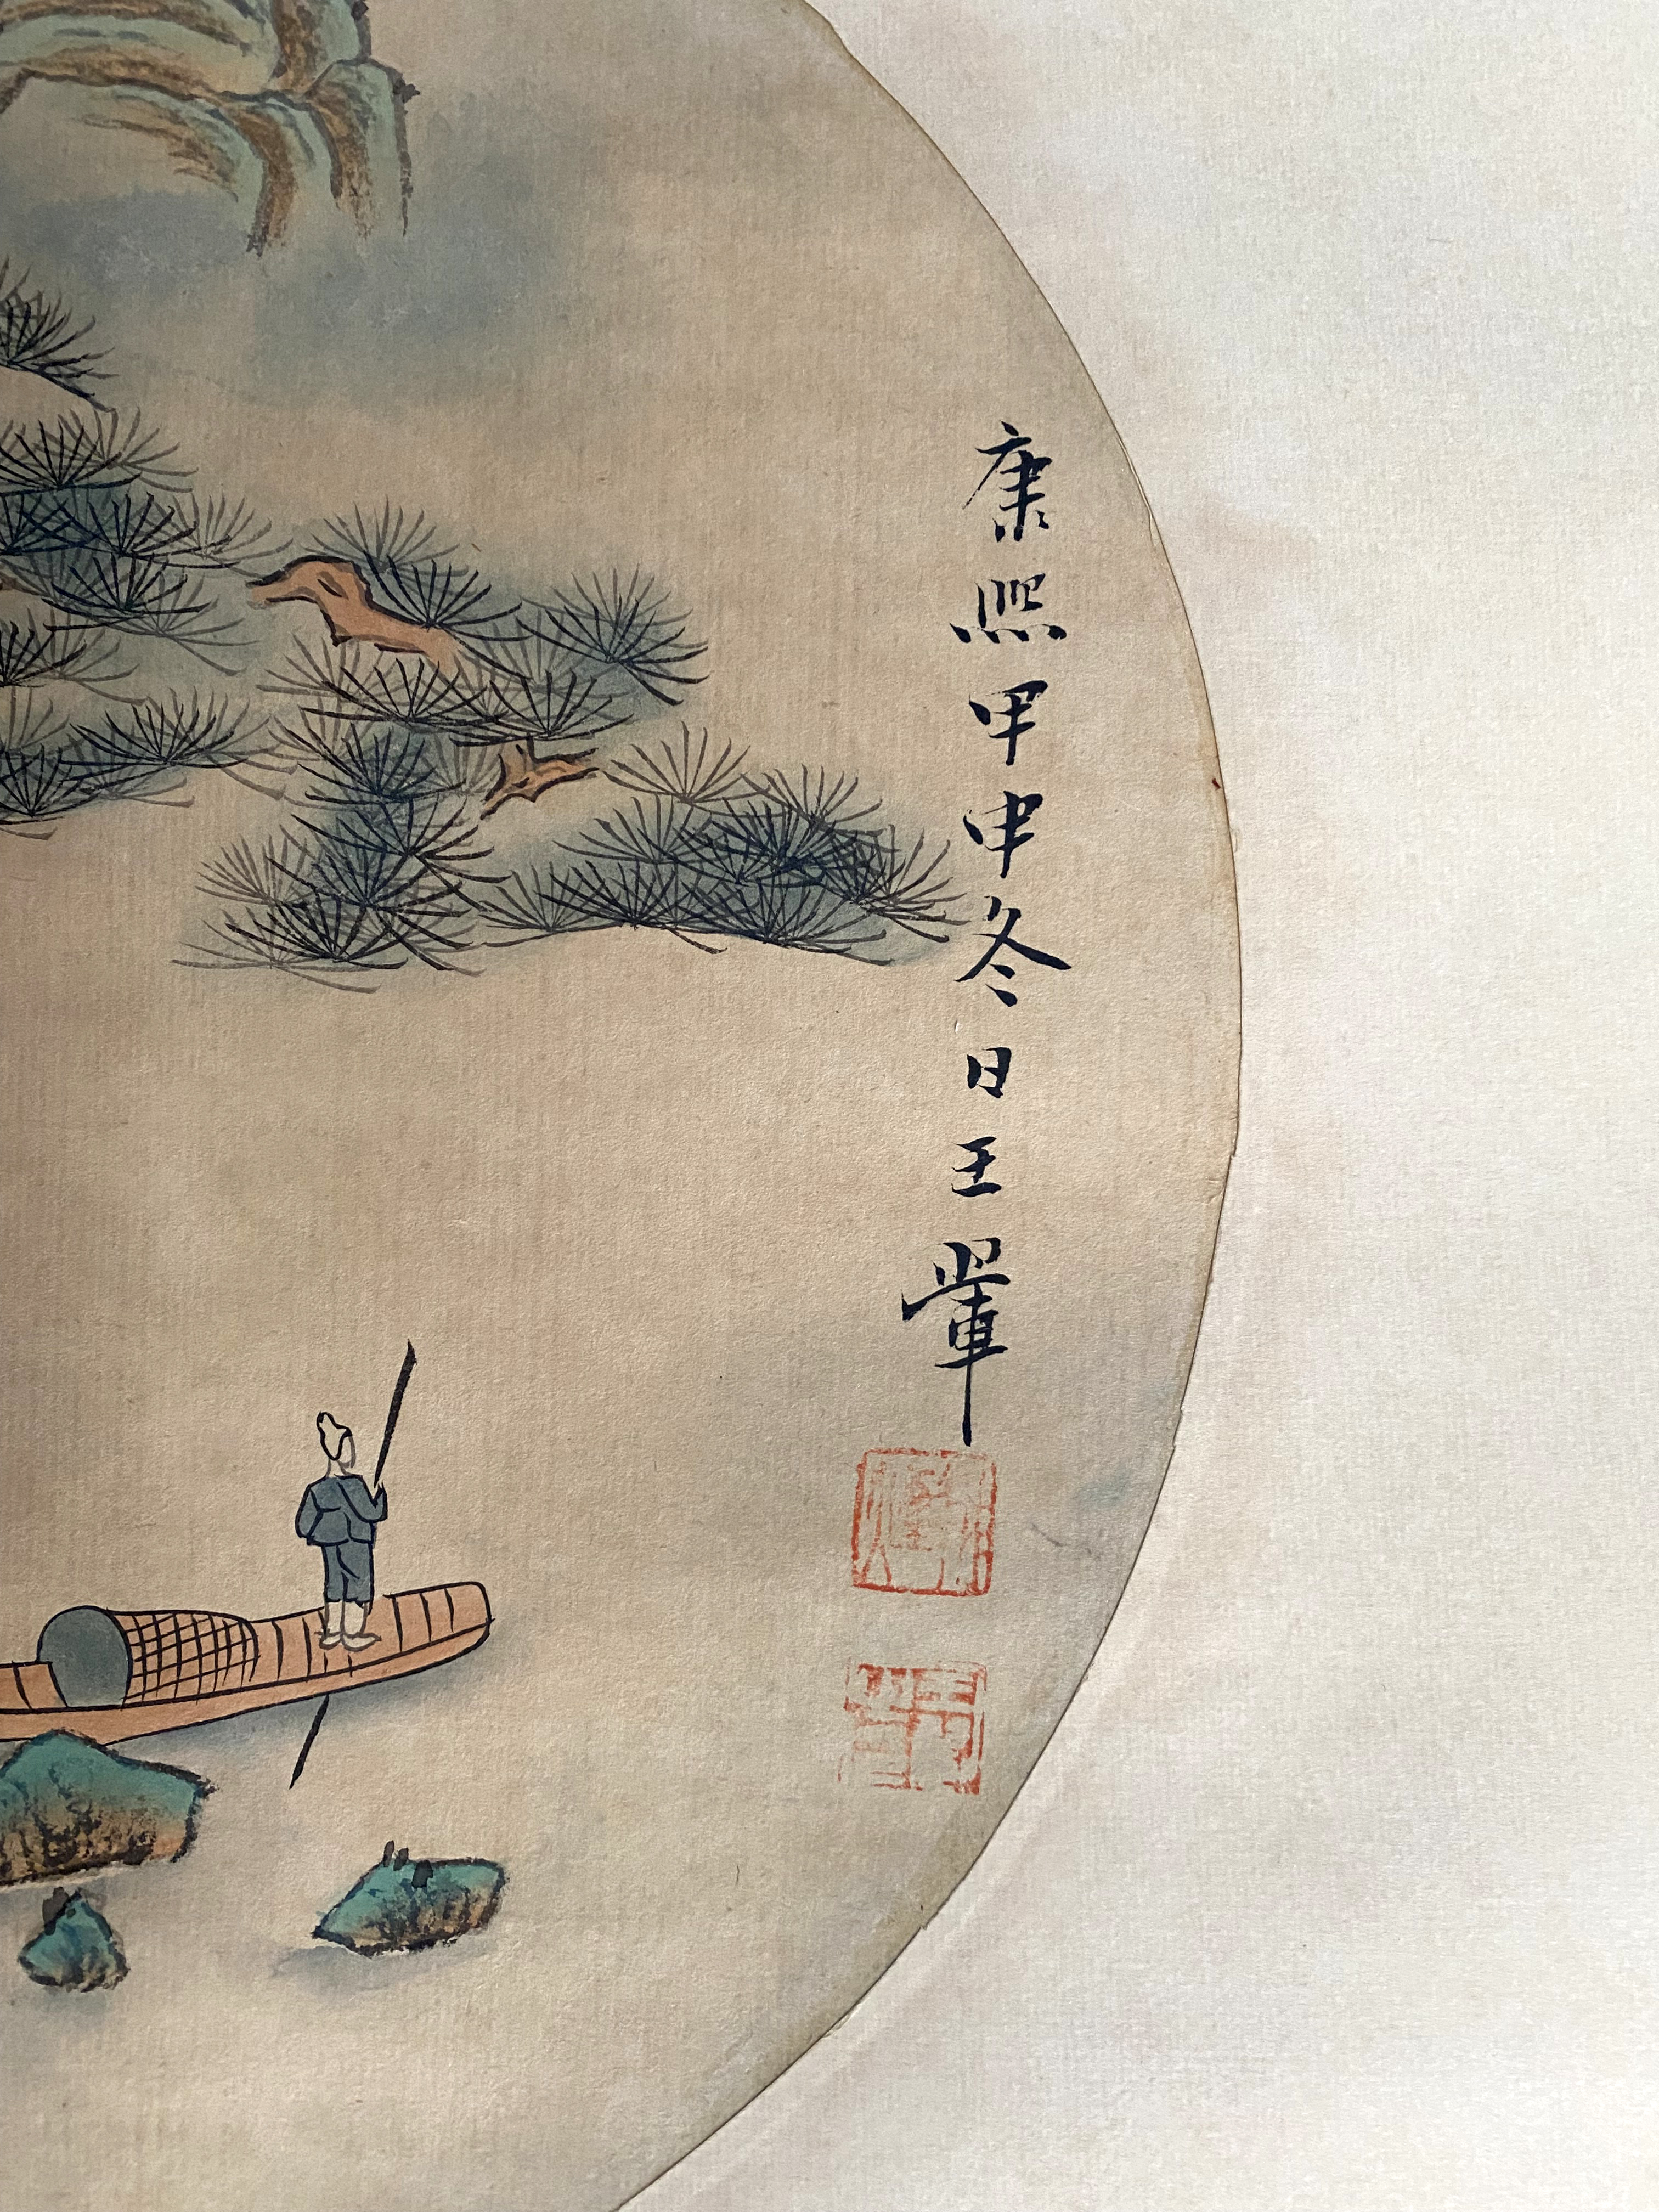 康熙甲申冬日王翬